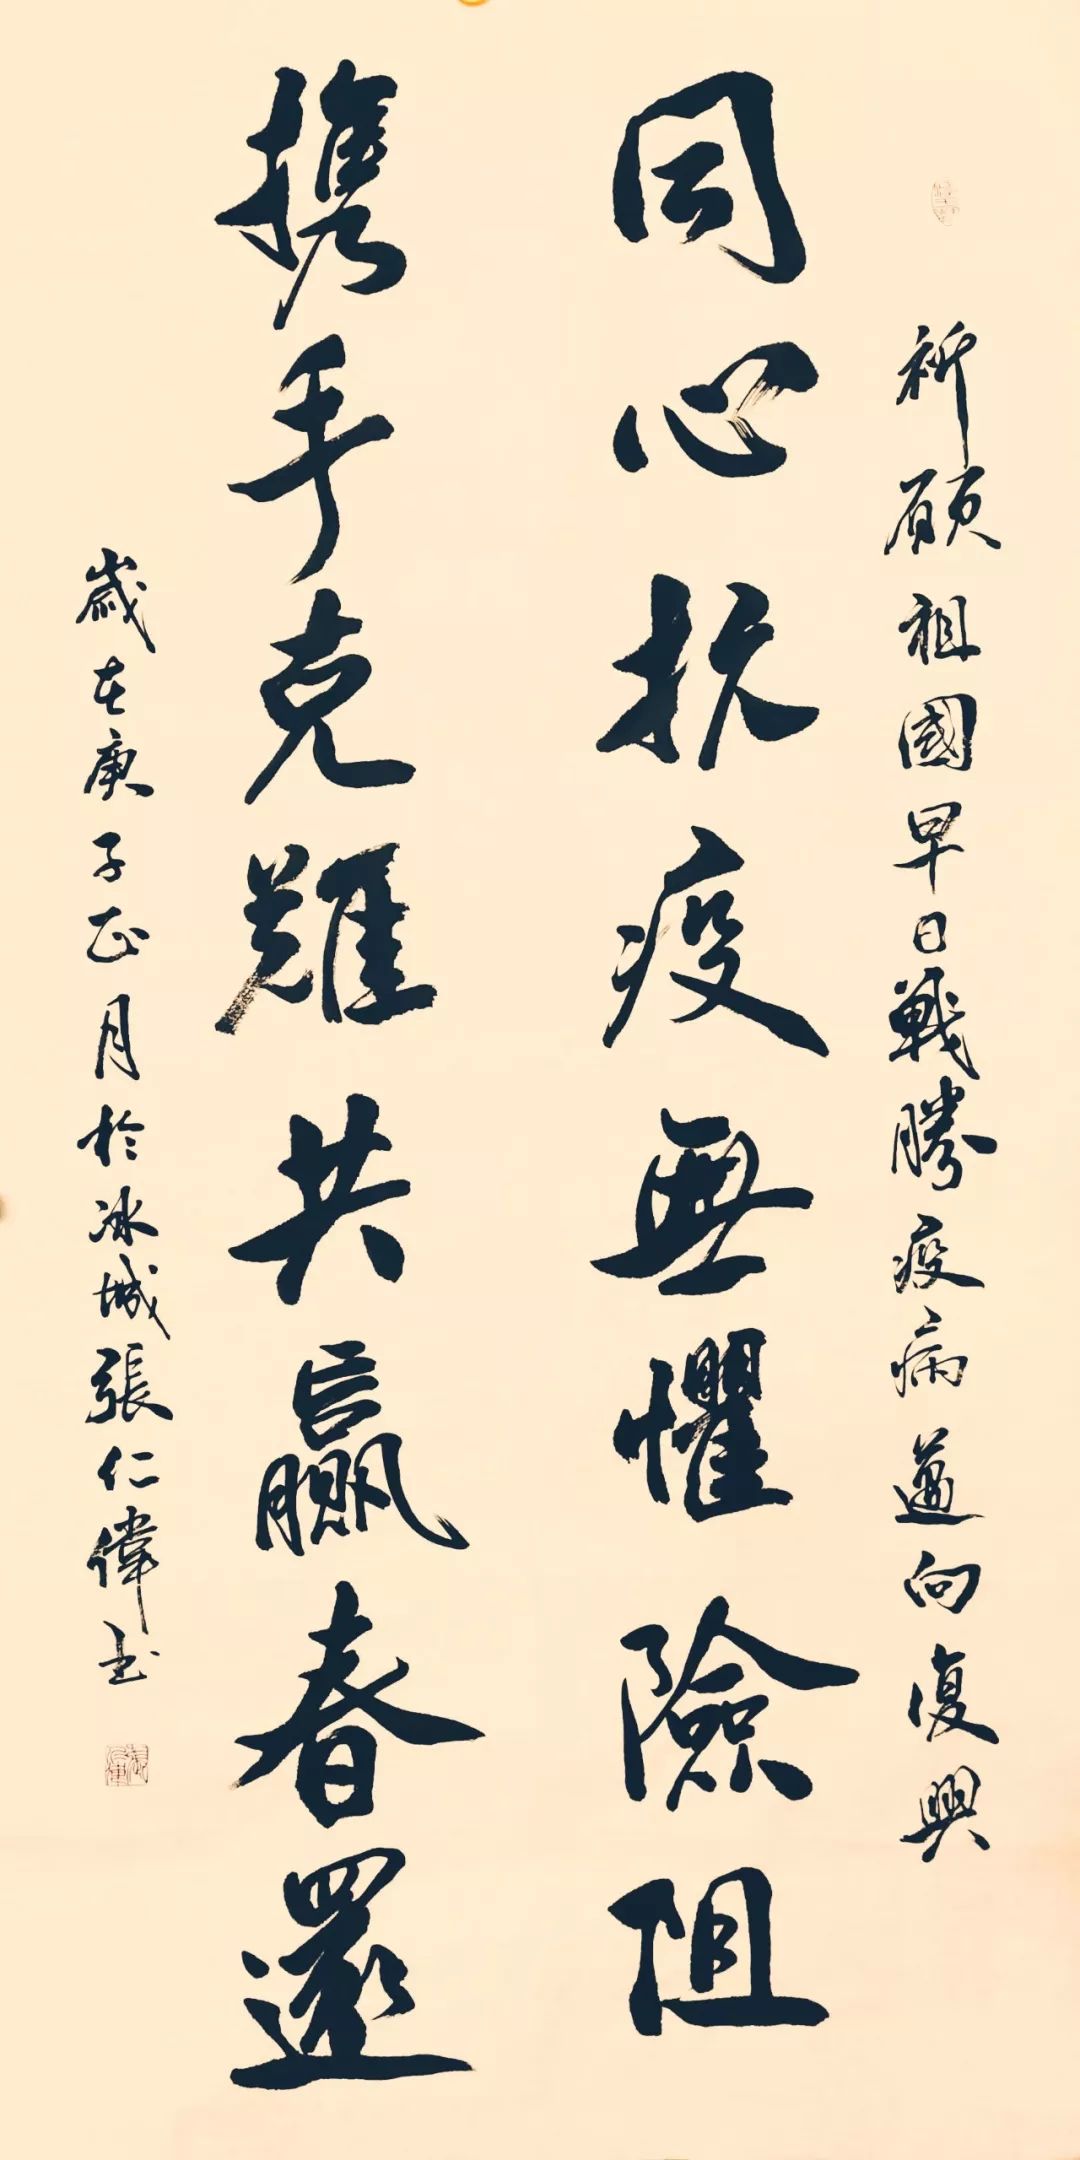 祈願祖國早日戰勝疫病邁向復興
同心抗疫無懼險阻
携手克難共贏春還
歲在庚子正月於冰城張仁偉书